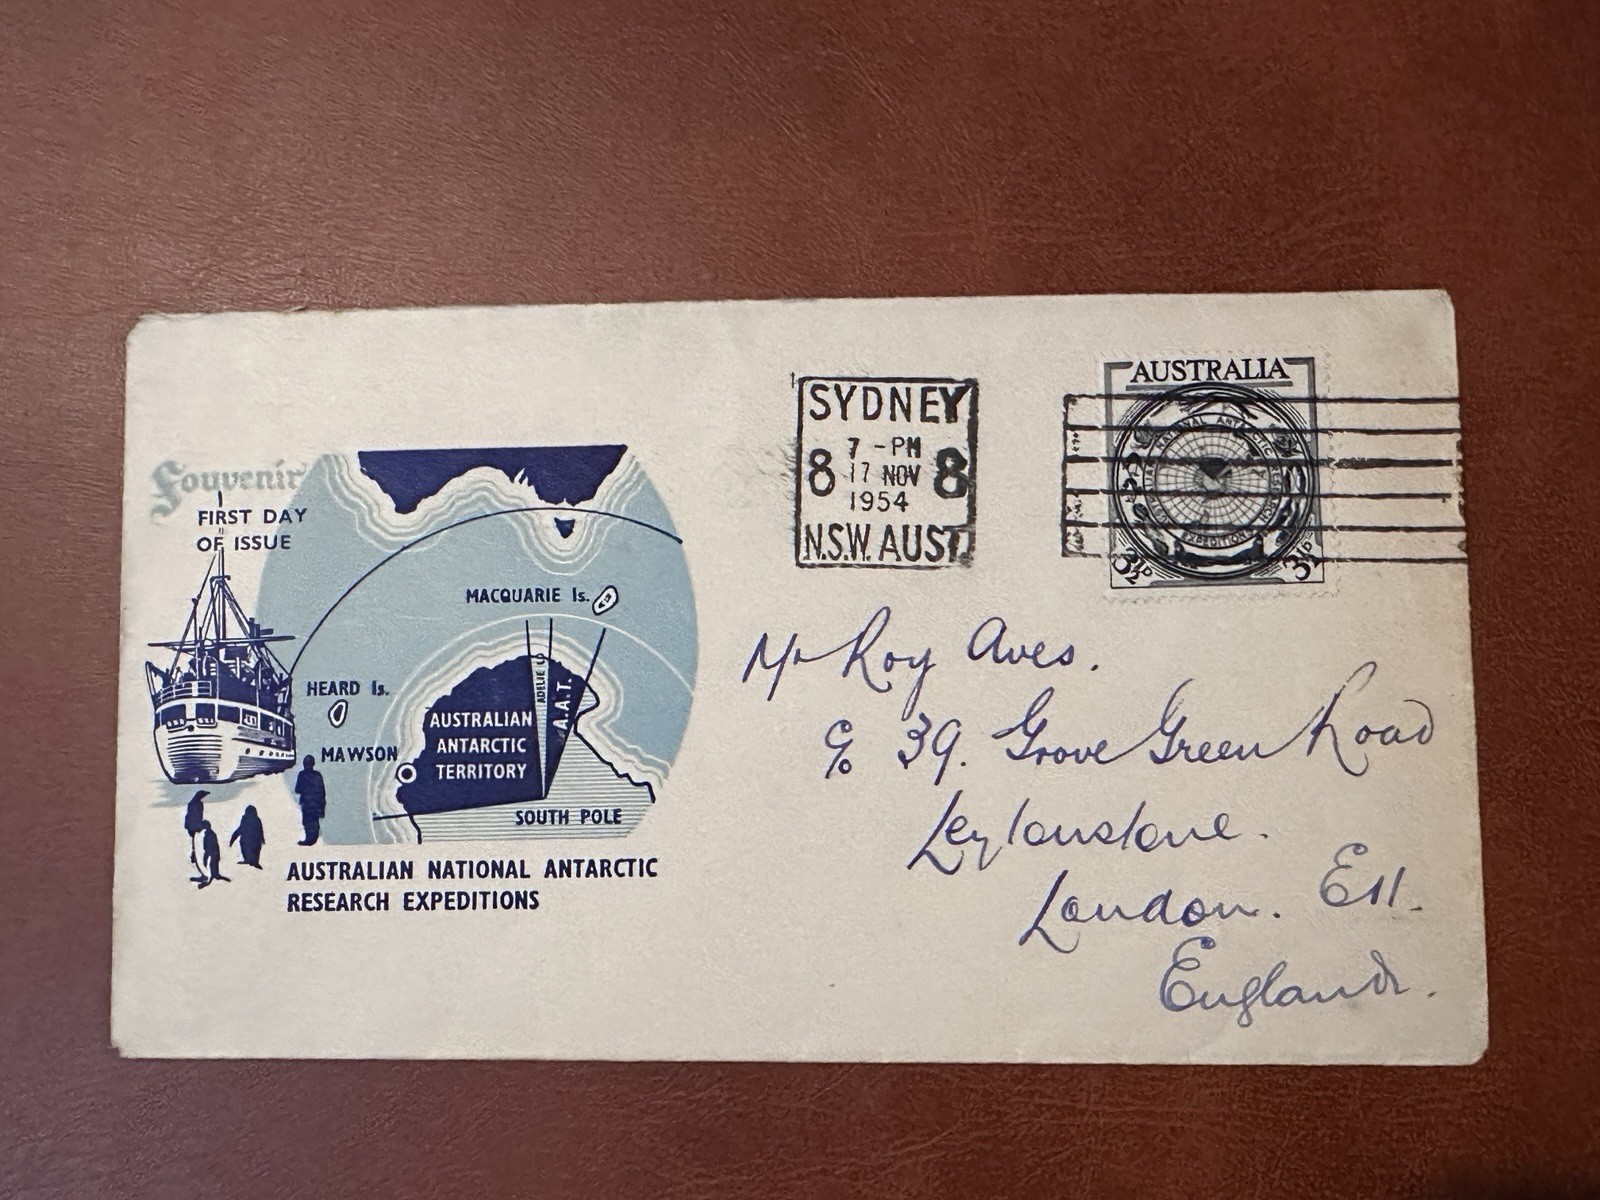 Souvenir
FIRST DAY
OF ISSUE
MACQUARIE Is.
HEARD Is.
MAWSON
AUSTRALIAN
ANTARCTIC
TERRITORY
ADELIE LD
A.A.T.
SOUTH POLE
AUSTRALIAN NATIONAL ANTARCTIC
RESEARCH EXPEDITIONS
SYDNEY
7 - PM
8 17 NOV 8
1954
N.S.W. AUST.
AUSTRALIA
NATIONAL ANTARCTIC
EXPEDITIONS
3½D 3½D
Mr Roy Aves.
c/o 39. Grove Green Road
Leytonstone.
London. E11.
England.